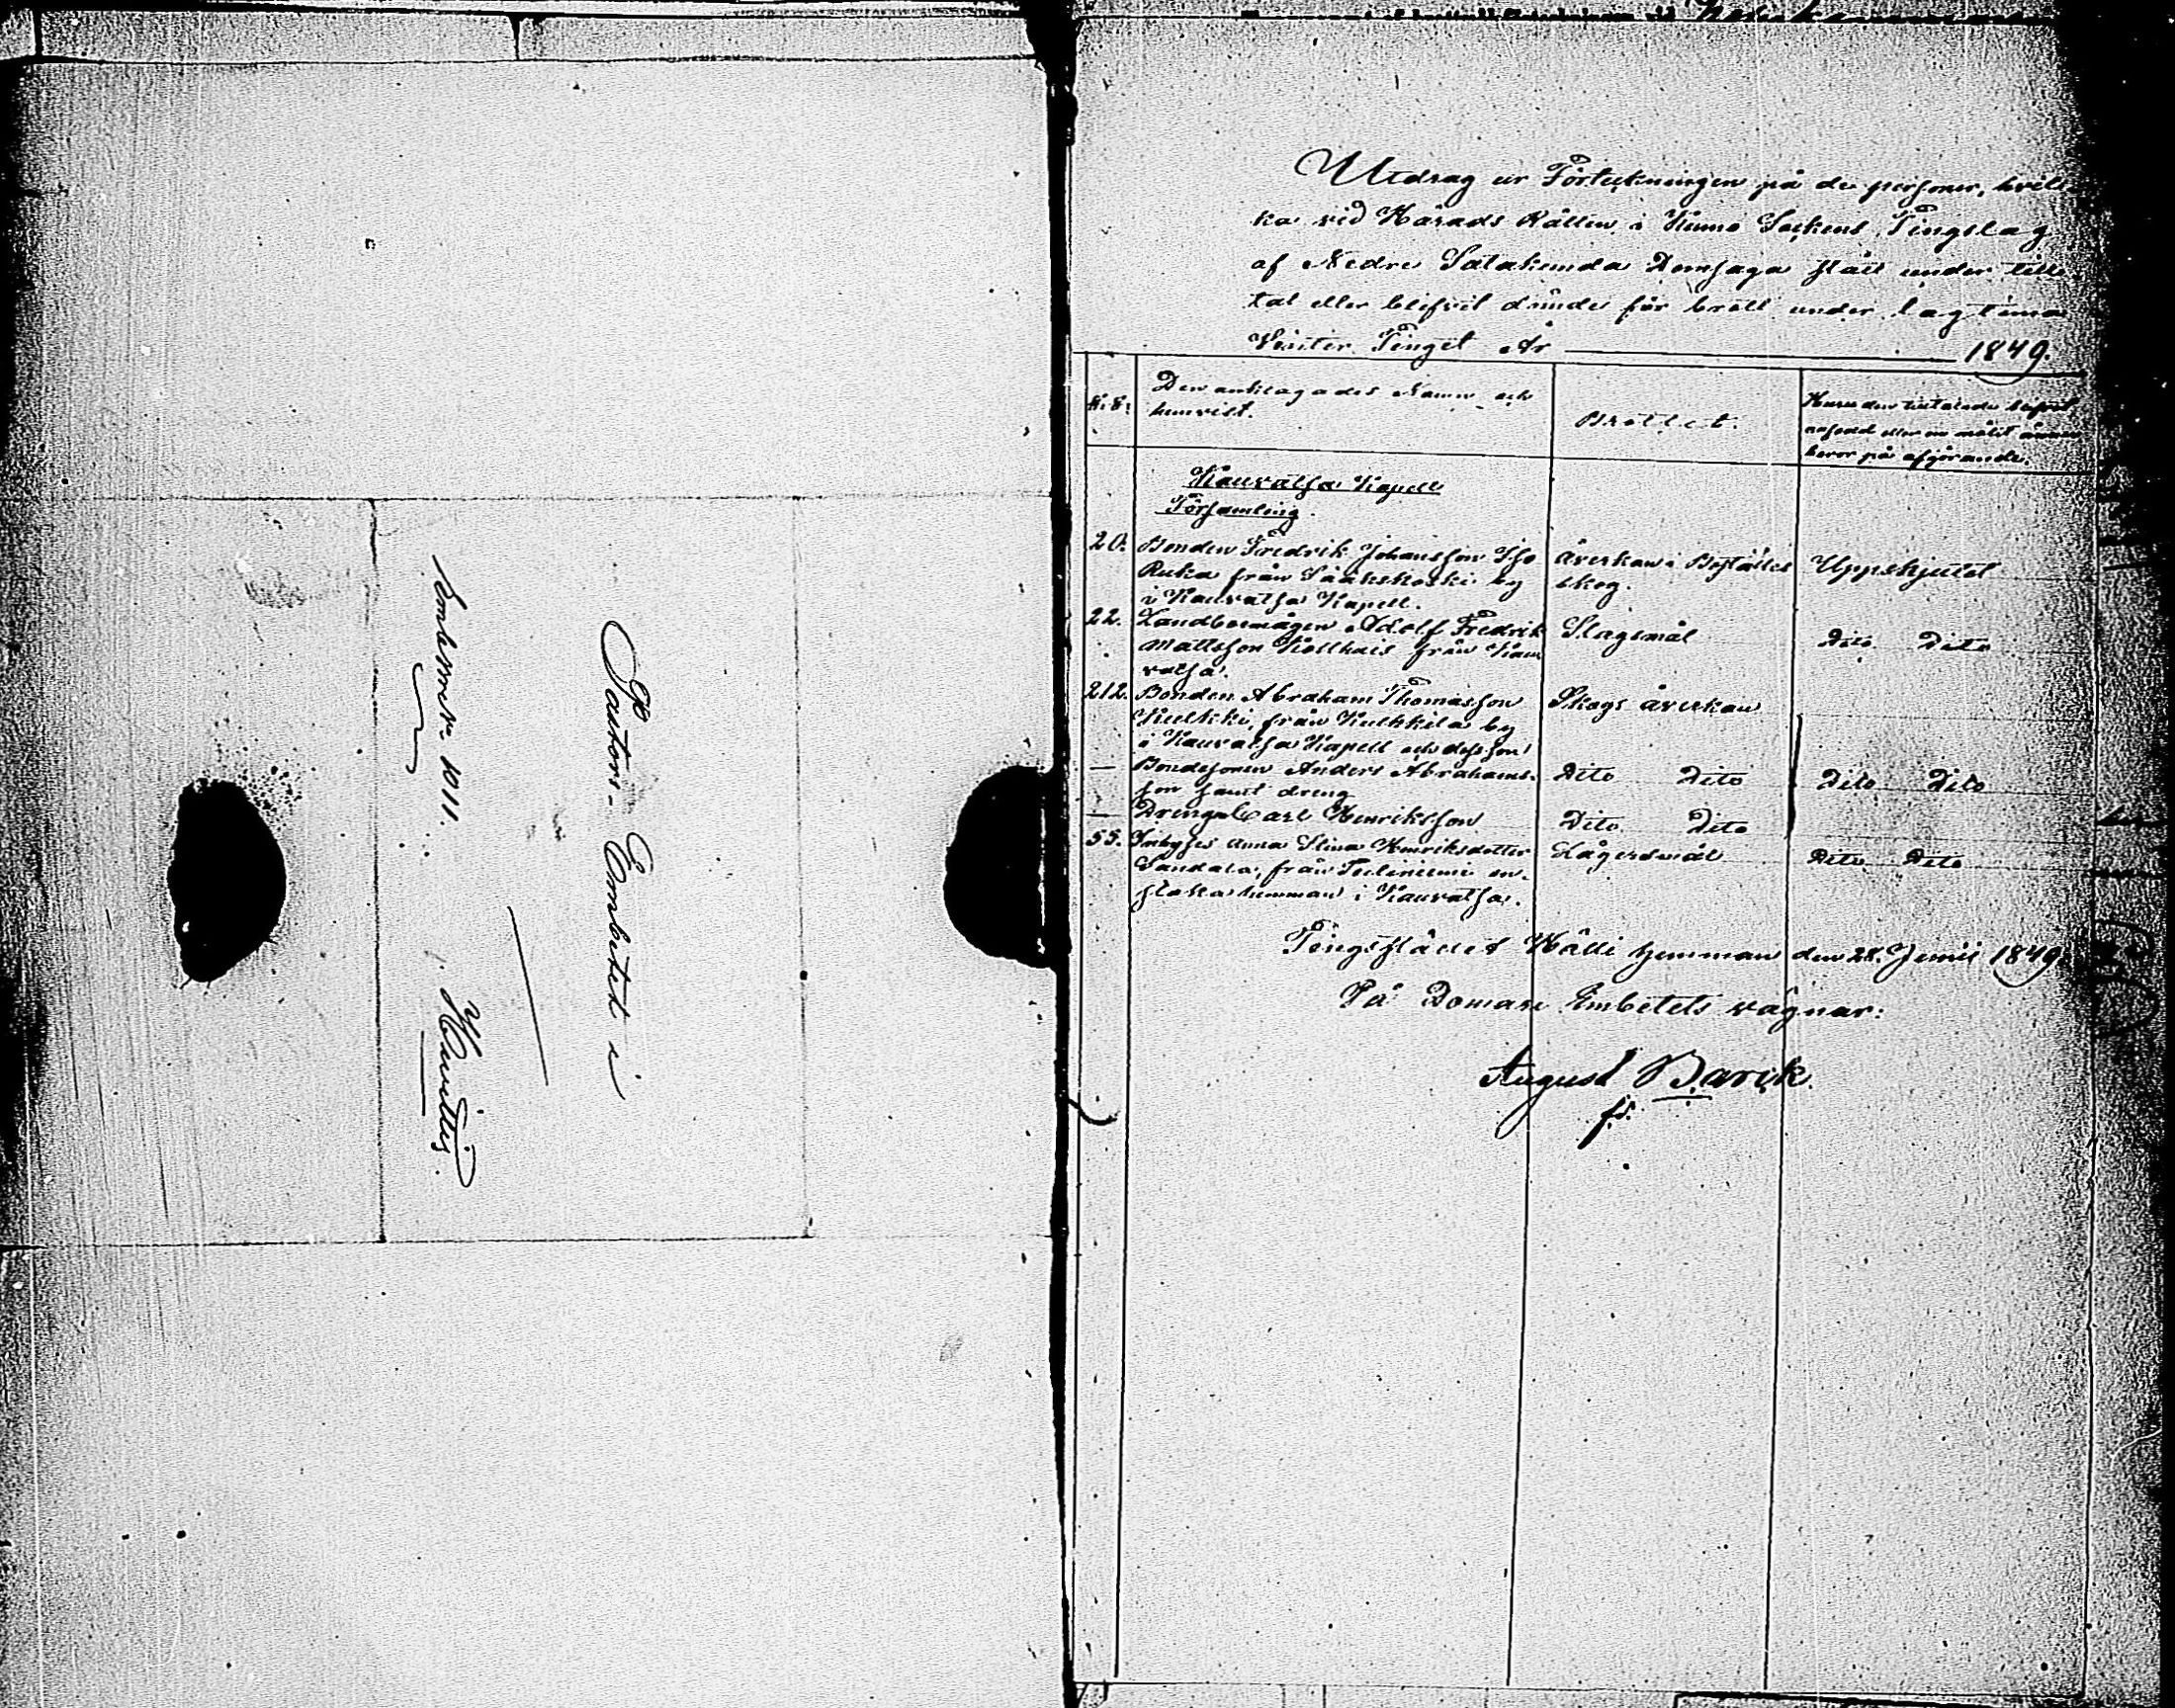 Pastors-Embetet i
Embetsres. 1811.
Huvittis.
Utdrag ur Förteckningen på de personer, hvil-
ka vid Härads Rätten i Kumo Sockens Tingslag
af Nedre Satakunda Domsaga stått under till-
tal eller blifvit dömde för brott under lagtima
Winter Tinget År 1849.
Den anklagades Namn och
hemvist.
Brottet.
Huru den tilltalade blifvit
ansedd eller om målet ännu
beror på afgörande.
Kauvatsa Kapell
Församling.
20. Bonden Fredrik Johansson Iso
Ruka från Sääkskoski by
i Kauvatsa Kapell.
åverkan i Boställes
skog.
Uppskjutet
22. Landbomågen Adolf Fredrik
Mattsson Kollkais från Kau-
vatsa.
Slagsmål
Dito Dito
212. Bonden Abraham Thomasson
Kulkki, från Kulkkila by
i Kauvatsa Kapell och dess son
Skogs åverkan
— Bondesonen Anders Abrahams-
son samt dreng
Dito Dito
Dito Dito
— Drengen Carl Henriksson
Dito Dito
55. Inhyses Anna Stina Henriksdotter
Sandala, från
hemman i Kauvatsa.
Lägersmål
Dito Dito
Tingsstället Wälli hemman den 28. Junii 1849.
På Domare Embetets vägnar:
August Barck.